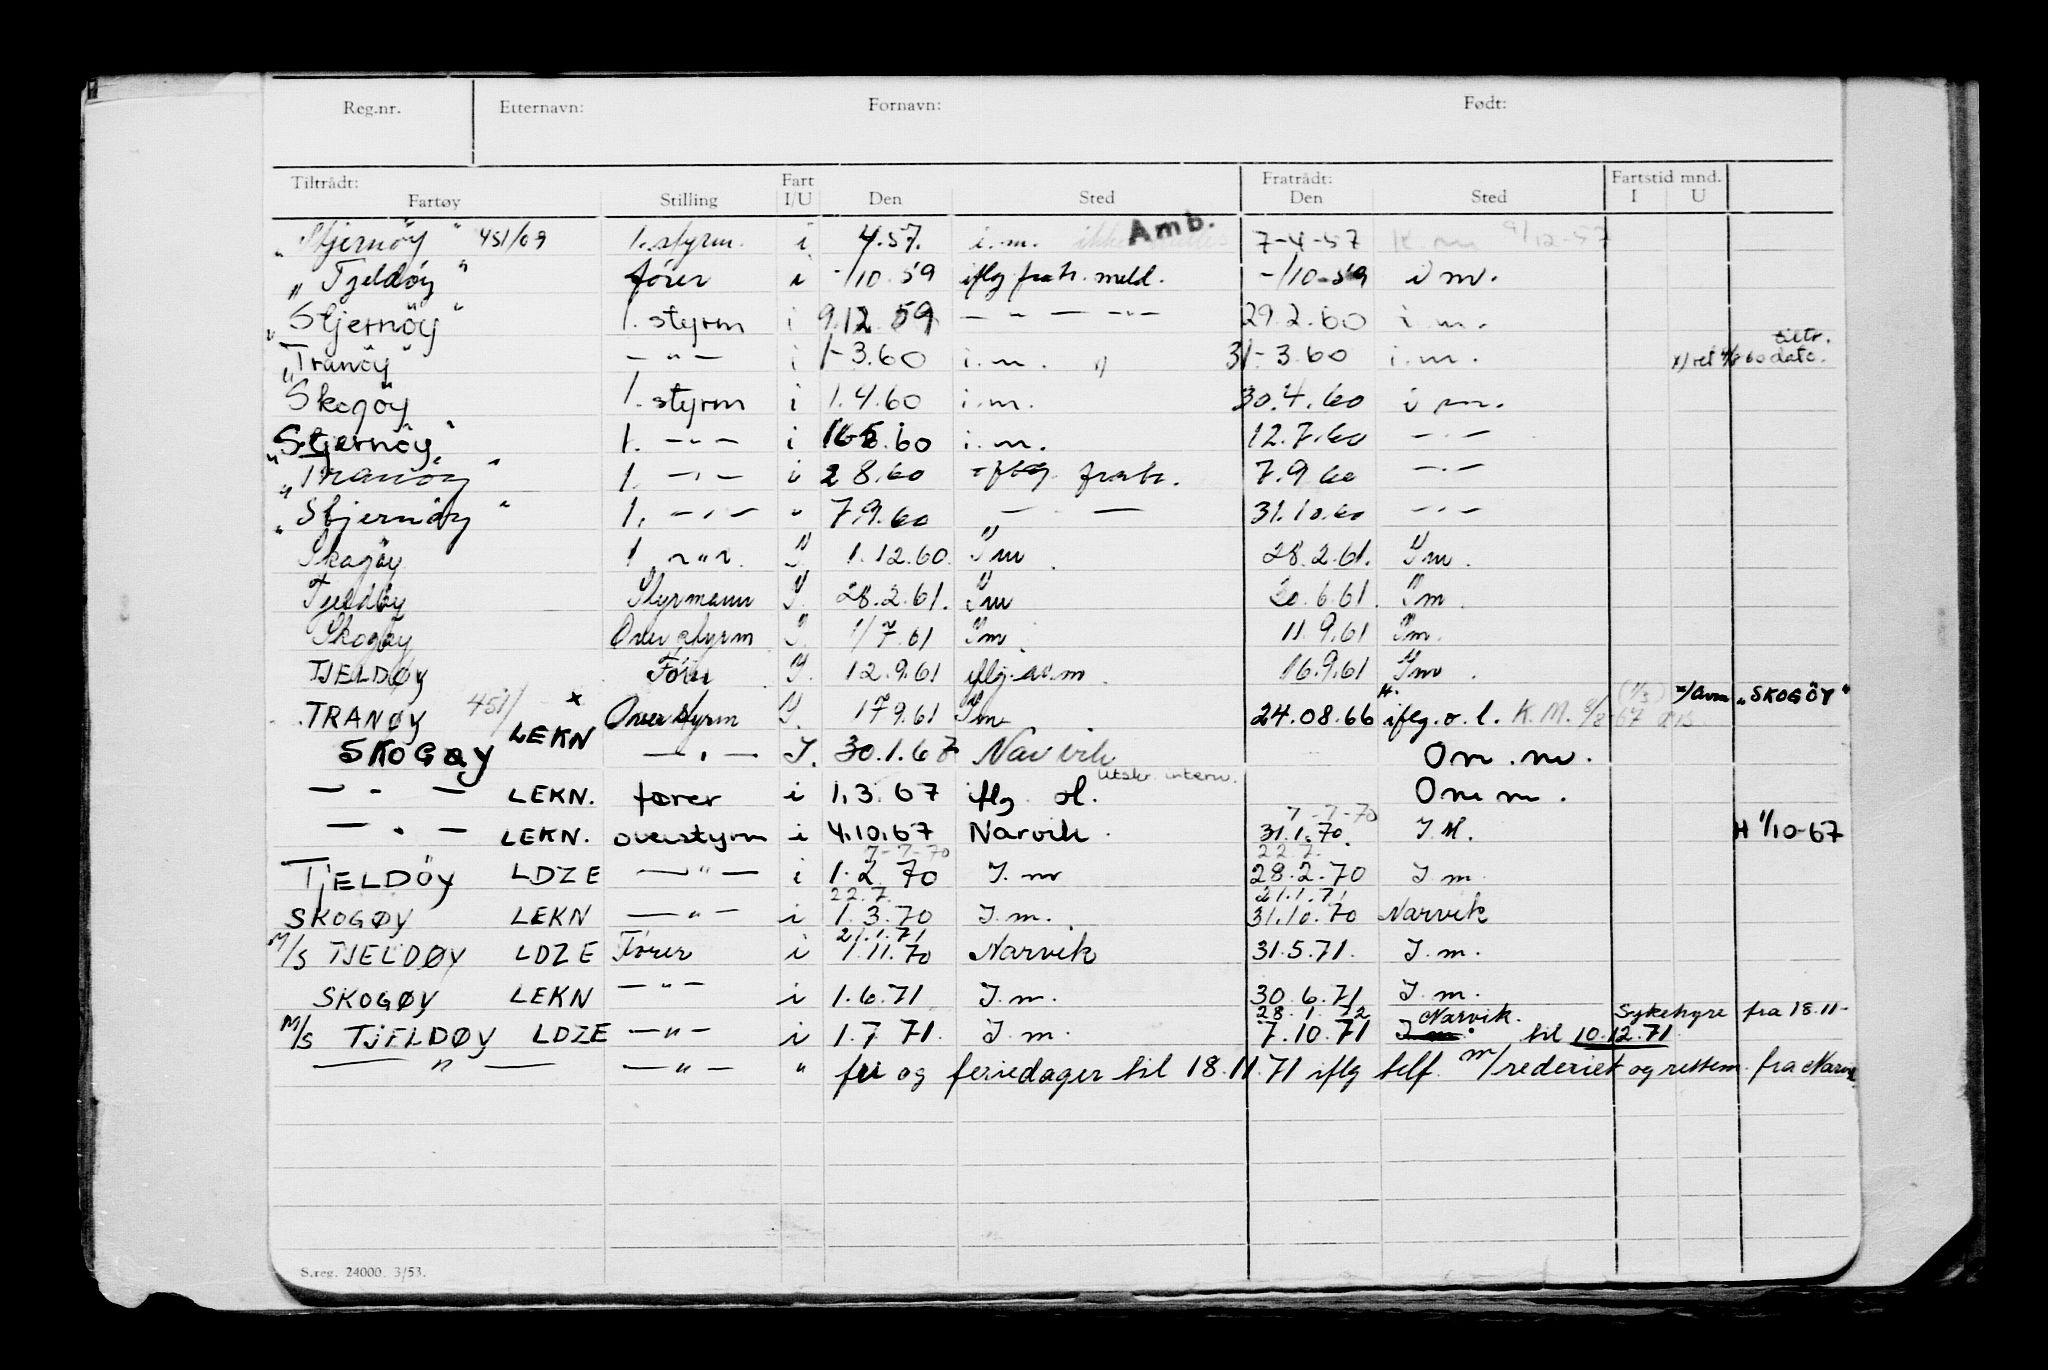 Reg.nr. Etternavn: Fornavn: Født:
Tiltrådt: Fart Fratrådt: Fartstid mnd.
Fartøy Stilling I/U Den Sted Den Sted I U
"Stjernöy" 451/09 1. styrm. i 4.57. i.m. Amb. 7-4-57 9/12-57
"Tjeldöy" förer i -/10.59 iflg fratr. meld. -/10-59 i m.
"Stjernöy" 1. styrm i 9.12.59 — " — — " — 29.2.60 i.m.
tiltr.
"Tranöy" — " — i 1-3.60 i.m. 31-3.60 i.m. dato.
Skogöy 1. styrm i 1.4.60 i.m. 30.4.60 i m.
"Stjernöy" 1. — " — i i.m. 12.7.60 — " —
"Tranöy" 1. — " — i 2 8.60 iflg. fratr. 7.9 60 — " —
"Stjernöy" 1. — " — " 7.9.60 — " — 31.10.60 — " —
Skogöy 1 — " — I. 1.12.60. Im. 28.2.61. Im.
Tjeldöy Styrmann I. 28.2.61. Im 30.6.61. Im.
Skogöy Overstyrm I. 1/7.61 Im. 11.9.61 Im.
TJELDØY Förer I. 12.9.61 iflg. av.m. 16.9.61 Im.
TRANØY 451/ x Overstyrm I. 17 9.61 Im 24.08.66 iflg. o. l. K.M. x/Avm "SKOGÖY"
SKOGØY LEKN — " — I. 30.1.67 Narvik Om.m.
Utskr. interv.
— " — LEKN. fører i 1.3.67 iflg ol. Om m.
7-7-70
— " — LEKN. overstyrm i 4.10.67 Narvik. 31.1.70. I.M. H 1/10-67
7-7-70 22.7.
TJELDÖY LDZE — " — i 1.2.70 I.m 28.2.70 I m
22.7. 21.1.71
SKOGØY LEKN — " — i 1.3.70 I.m. 31.10.70 Narvik
21.1.71
M/S TJELDØY LDZE Förer i 1.11.70 Narvik 31.5.71. I.m.
SKOGØY LEKN — " — i 1.6.71 I.m. 30.6.71 I.m.
28.1.72 Narvik. Sykehyre fra 18.11-
M/S TJELDØY LDZE — " — i 1.7 71. I.m. 7.10.71 I m. til 10.12.71
— " — — " — " fri og feriedager til 18.11.71 iflg telf. m/rederiet og fra Narvik
S.reg. 24000. 3/53.